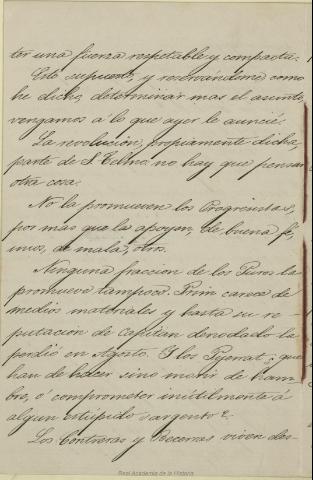 ter una fuerza respetable y compacta.
Esto supuesto, y reservándome como
he dicho, determinar mas el asunto,
vengamos á lo que ayer le anuncié.
La revolucion, propiamente dicha,
parte de S. Telmo: no hay que pensar
otra cosa.
No la promueven los Progresistas,
por mas que la apoyen, de buena fé,
unos, de mala, otros.
Ninguna fraccion de los Puros la
promueve tampoco. Prim carece de
medios materiales y hasta su re-
putacion de Capitan denodado la
perdió en Agosto. Y los Pierrat, ¿que
han de hacer sino morir de ham-
bre, ó comprometer inutilmente á
algun estúpido sargento?
Los Contreras y Becerras viven des-
Real Academia de la Historia